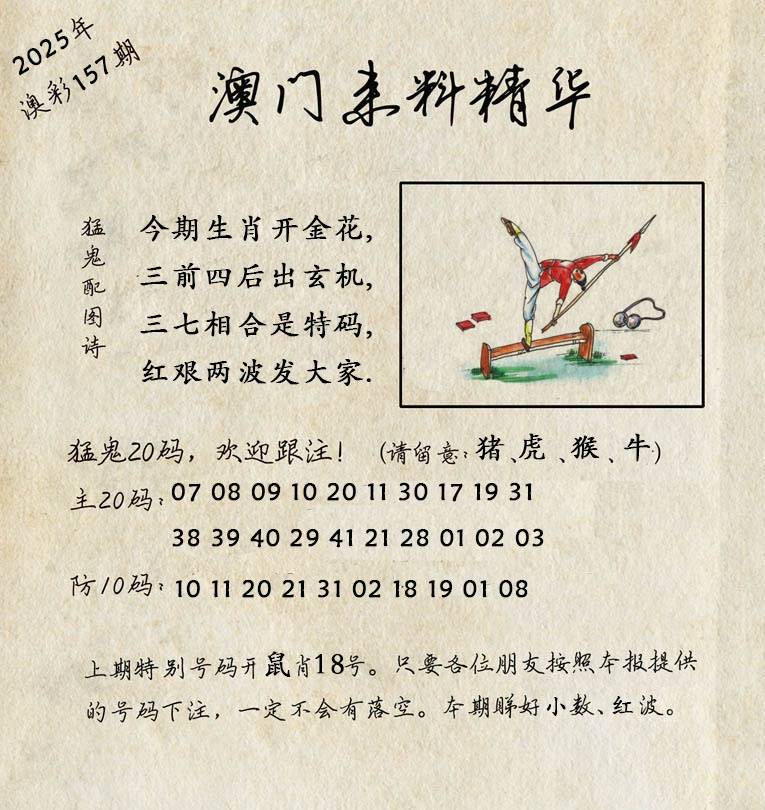 2025年
澳彩157期
澳门来料精华
猛鬼配图诗
今期生肖开金花,
三前四后出玄机,
三七相合是特码,
红艰两波发大家.
猛鬼20码，欢迎跟注！（请留意：猪、虎、猴、牛）
主20码：07 08 09 10 20 11 30 17 19 31
38 39 40 29 41 21 28 01 02 03
防10码：10 11 20 21 31 02 18 19 01 08
上期特别号码开鼠肖18号。只要各位朋友按照本报提供
的号码下注，一定不会有落空。本期睇好小数、红波。